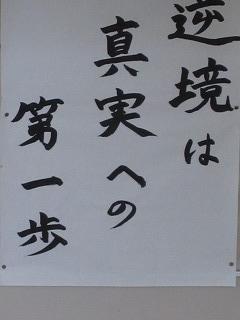 逆境は
真実への
第一歩